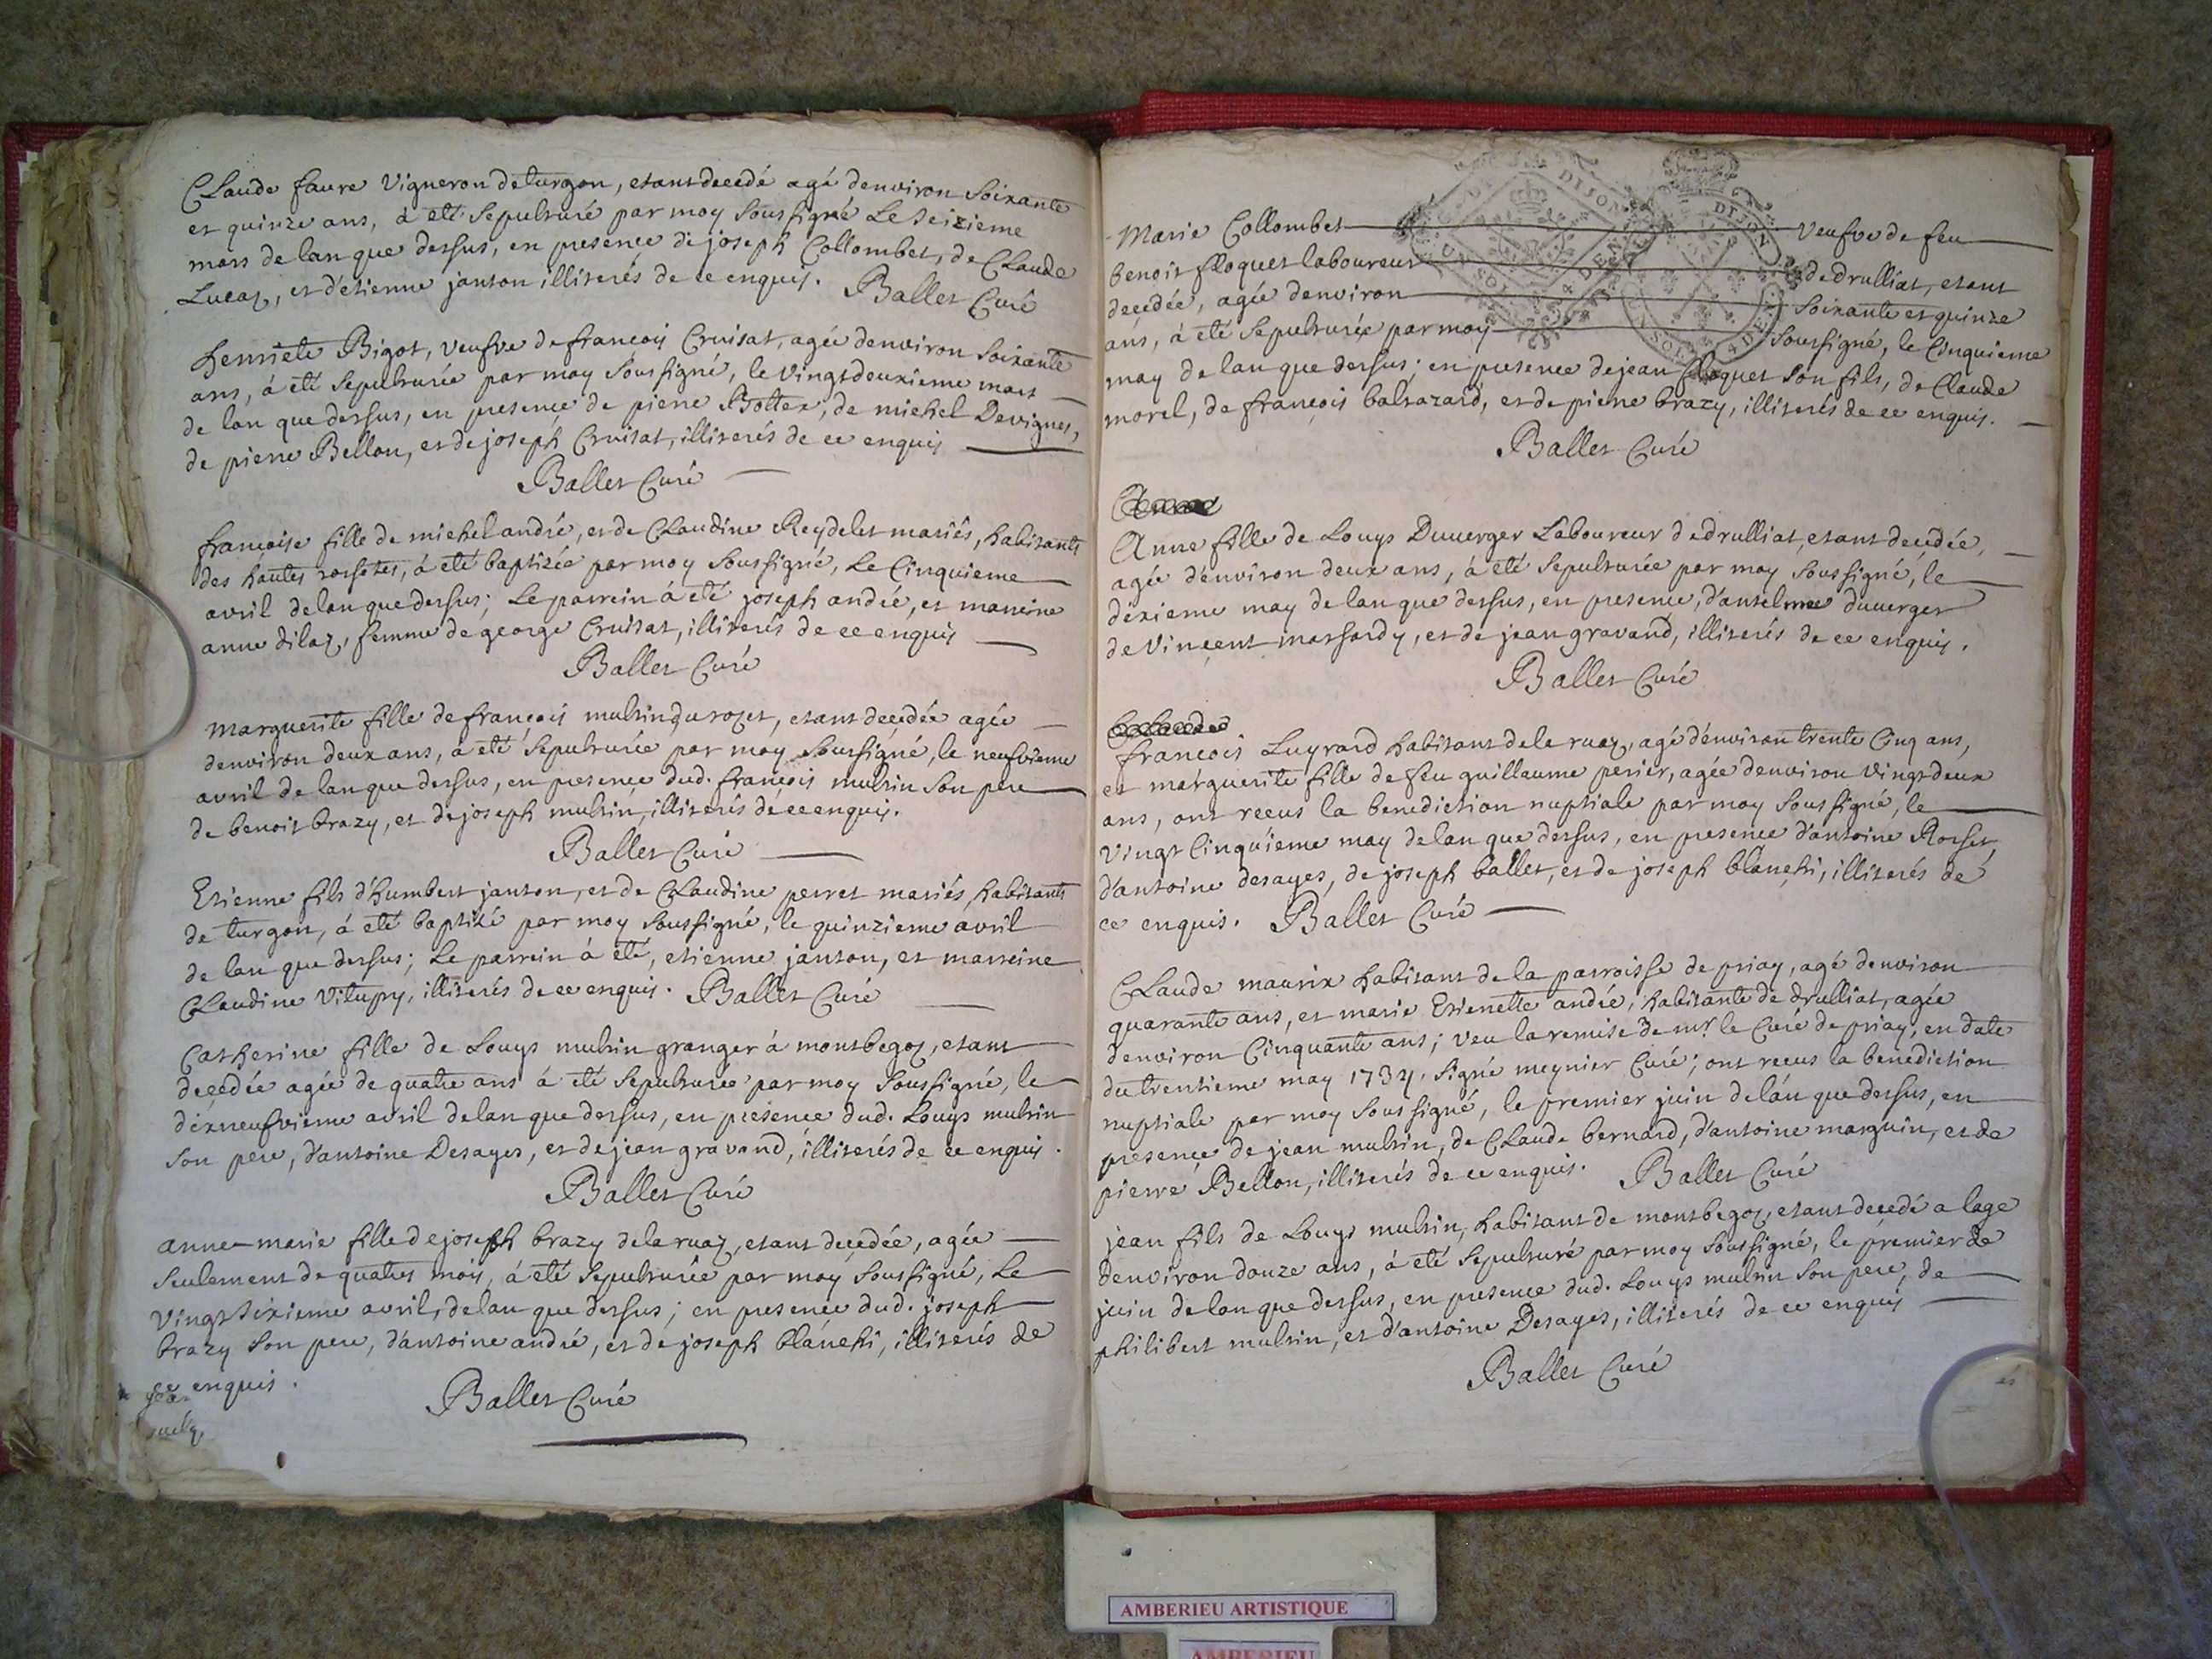 Claude faure Vigneron de turgon, etant decedé agé denviron Soixante
et quinze ans, à eté Sepulturé par moy Soussigné Le Seizieme
mars de lan que dessus, en presence de joseph Collombet, de Claude
Lucaz, et d'etienne janton illiterés de ce enquis. Ballet Curé
henriete Bigot, veufve de francois Cruisat, agée denviron Soixante
ans, à eté Sepulturée par moy Soussigné, le vingtdeuxieme mars
de lan que dessus, en presence de pierre Bottex, de michel Devignes,
de pierre Bellon, et de joseph Cruisat, illiterés de ce enquis
Ballet Curé
françoise fille de michel andré, et de Claudine Reydelet mariés, habitants
des hautes rossetes, à eté baptizée par moy Soussigné, Le Cinquieme
avril de lan que dessus; Le parrein à eté joseph andré, et marreine
anne dilaz, femme de george Cruisat, illiterés de ce enquis
Ballet Curé
marguerite fille de francois multin du rozet, etant decedée agée
denviron deux ans, à eté Sepulturée par moy Soussigné, le neufvieme
avril de lan que dessus, en presence dud. francois multin Son pere
de benoit brazy, et de joseph multin, illiterés de ce enquis.
Ballet Curé
Etienne fils d'humbert janton, et de Claudine perret mariés, habitants
de turgon, à eté baptizé par moy Soussigné, le quinzieme avril
de lan que dessus; Le parrein à eté, etienne janton, et marreine
Claudine Vitupry, illiterés de ce enquis. Ballet Curé
Catherine fille de Louys multin granger à montbegoz, etant
decedée agée de quatre ans à eté Sepulturée par moy Soussigné, le
dixneufvieme avril de lan que dessus, en presence dud. Louys multin
Son pere, d'antoine Desayes, et de jean gravand, illiterés de ce enquis.
Ballet Curé
anne-marie fille de joseph brazy de la ruaz, etant decedée, agée
Seulement de quatres mois, à eté Sepulturée par moy Soussigné, Le
vingt Sixieme avril, de lan que dessus; en presence dud. joseph
brazy Son pere, d'antoine andré, et de joseph blanchi, illiterés de
ce enquis.
Ballet Curé
Marie Collombet veufve de feu
benoit floquet laboureur de drulliat, etant
decedée, agée denviron Soixante et quinze
ans, à eté Sepulturée par moy Soussigné, le Cinquieme
may de lan que dessus; en presence de jean floquet Son fils, de Claude
morel, de françois baltazard, et de pierre brazy, illiterés de ce enquis.
Ballet Curé
Anne fille de Louys Duverger Laboureur de drulliat, etant decedée,
agée denviron deux ans, à eté Sepulturée par moy Soussigné, le
dixieme may de lan que dessus, en presence, d'antelme duverger
de Vincent massardy, et de jean gravand, illiterés de ce enquis.
Ballet Curé
francois Luyrard habitant de la ruaz, agé denviron trente Cinq ans,
et marguerite fille de feu guillaume perier, agée denviron vingtdeux
ans, ont receus la benediction nuptiale par moy Soussigné, le
vingt Cinquieme may de lan que dessus, en presence d'antoine Rosset,
d'antoine desayes, de joseph ballet, et de joseph blanchi, illiterés de
ce enquis. Ballet Curé
Claude maurix habitant de la parroisse de priay, agé denviron
quarante ans, et marie Etienette andré, habitante de drulliat, agée
denviron Cinquante ans; veu la remise de mr. le Curé de priay, en date
du trentieme may 1734. Signé meynier Curé; ont receus la benediction
nuptiale par moy Soussigné, le premier juin de lan que dessus, en
presence de jean multin, de Claude bernard, d'antoine marguin, et de
pierre Bellon, illiterés de ce enquis. Ballet Curé
jean fils de Louys multin, habitant de montbegoz, etant decedé a lage
denviron douze ans, à eté Sepulturé par moy Soussigné, le premier de
juin de lan que dessus, en presence dud. Louys multin Son pere, de
philibert multin, et d'antoine Desayes, illiterés de ce enquis
Ballet Curé
AMBERIEU ARTISTIQUE
AMBERIEU